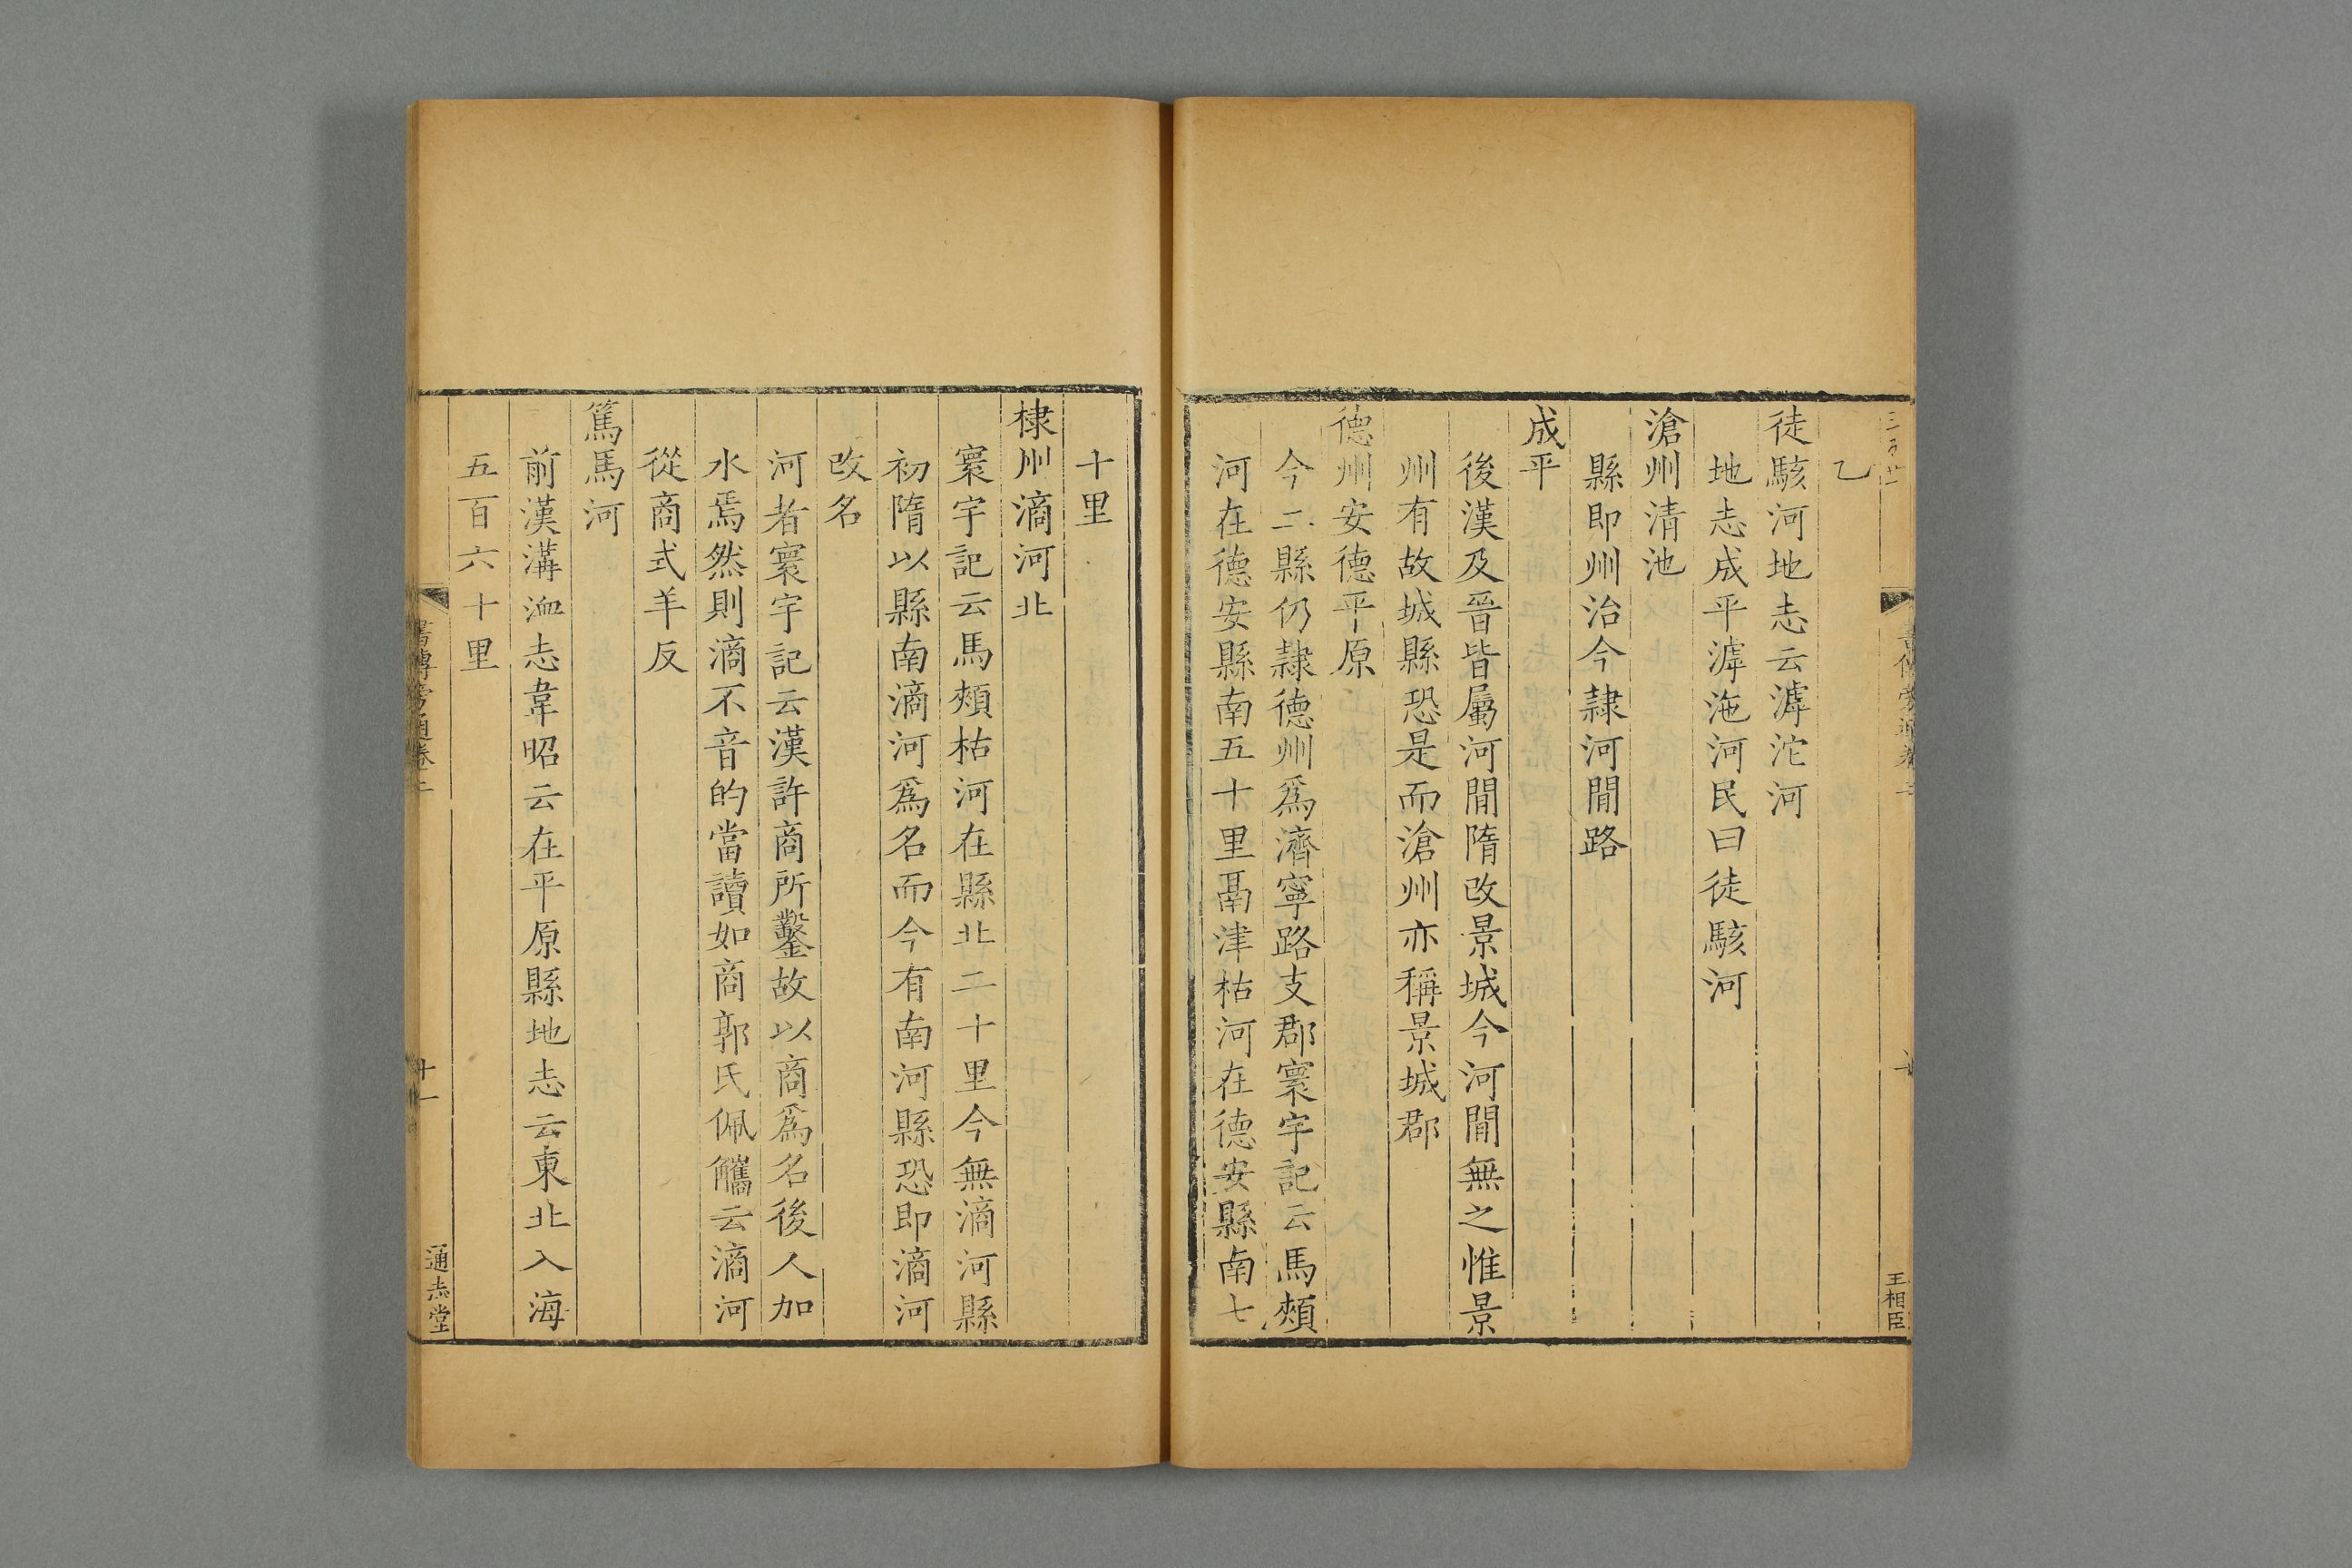 乙
徒駭河地志云滹沱河
地志成平滹沲河民曰徒駭河
滄州清池
縣即州治今隸河閒路
成平
後漢及晉皆屬河閒隋改景城今河閒無之惟景
州有故城縣恐是而滄州亦稱景城郡
德州安德平原
今二縣仍隸德州爲濟寧路支郡寰宇記云馬頰
河在德安縣南五十里鬲津枯河在德安縣南七
王相臣
十里
棣州滳河北
寰宇記云馬頰枯河在縣北二十里今無滳河縣
初隋以縣南滳河爲名而今有南河縣恐即滳河
改名
河者寰宇記云漢許商所鑿故以商爲名後人加
水焉然則滳不音的當讀如商郭氏佩觿云滳河
從商式羊反
篤馬河
前漢溝洫志韋昭云在平原縣地志云東北入海
五百六十里
書傳旁通卷二
十一
通志堂